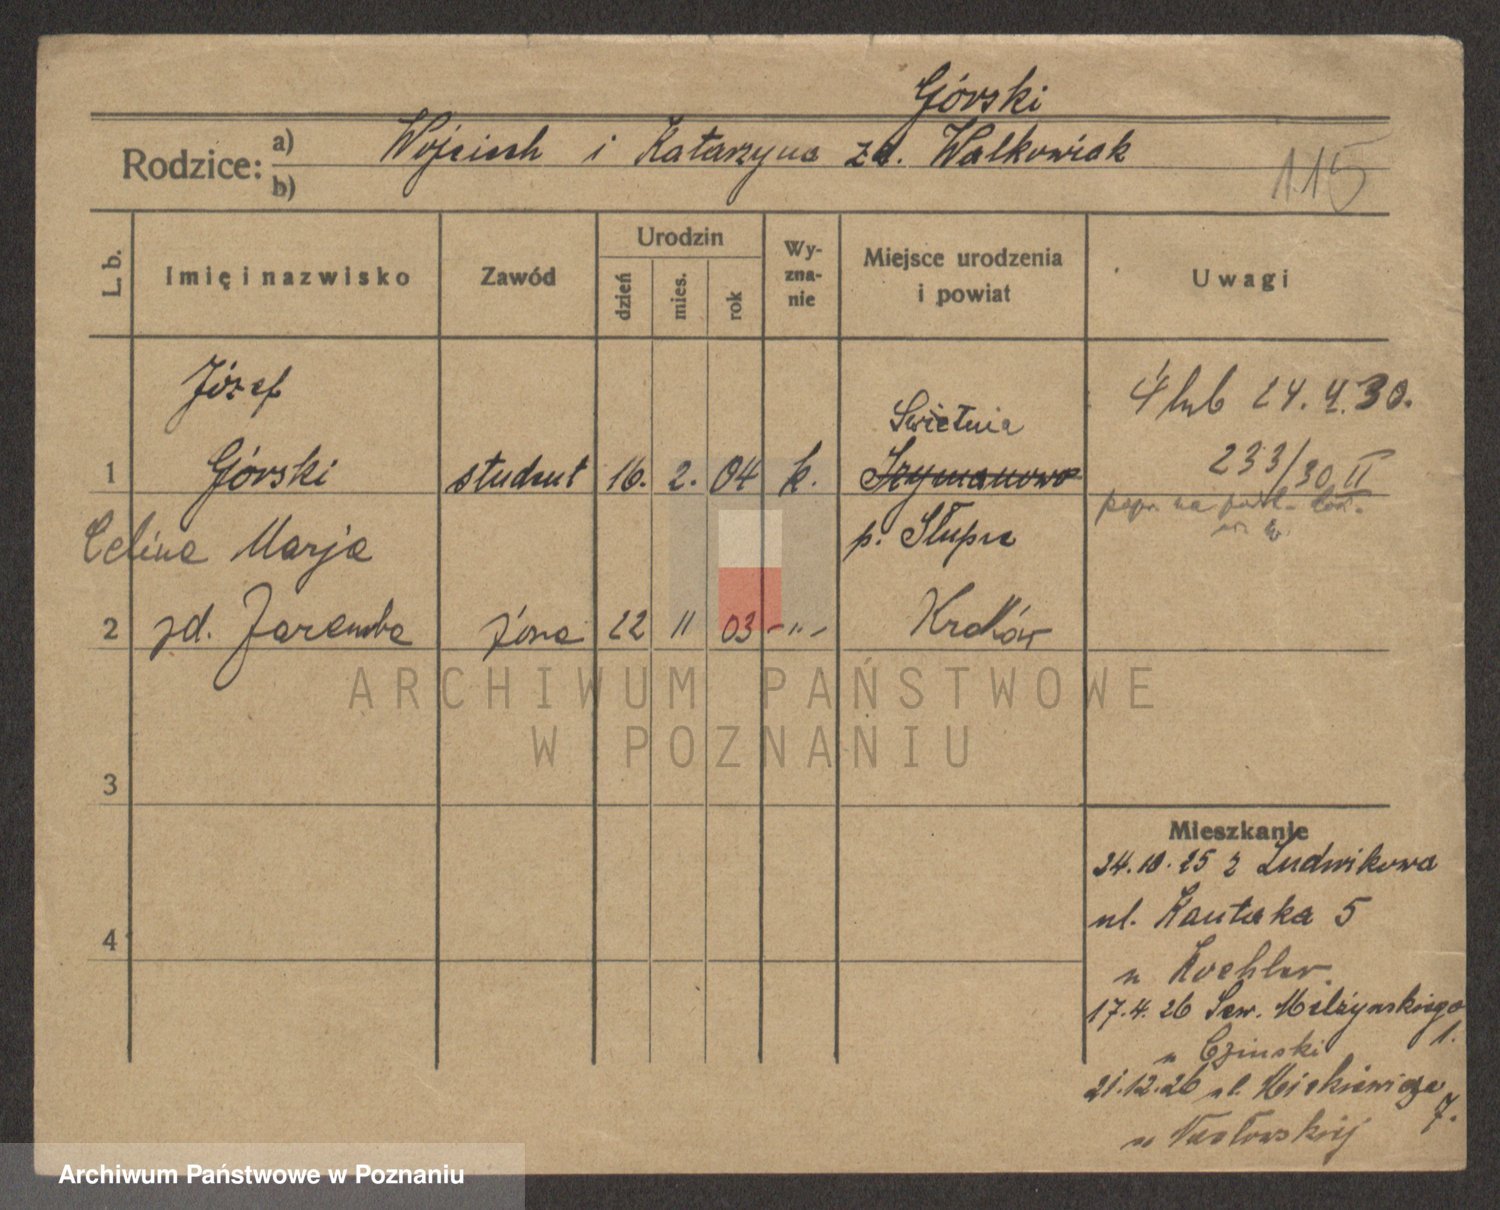 Górski
Rodzice: a) Wojciech i Katarzyna zd. Walkowiak
b)
115
L. b.
Imię i nazwisko
Zawód
Urodzin
dzień
mies.
rok
Wy-
zna-
nie
Miejsce urodzenia
i powiat
Uwagi
Józef
1 Górski student 16. 2. 04 k.
Swietnia
Szymanowo
p. Słupia
ślub 24. 4. 30.
233/30 II
popr. na
Celina Marja
2 zd. Jaremba żona 22 11 03 -"-
Kraków
ARCHIWUM PAŃSTWOWE
W POZNANIU
3
4
Mieszkanie
24.10.25 z Ludwikowa
ul. Kantaka 5
u Koehler.
17.4.26 Sew. Mielżyńskiego
1.
u
21.12.26 ul. Mickiewicza
7.
u
Archiwum Państwowe w Poznaniu